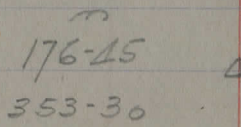 176-45
353-30